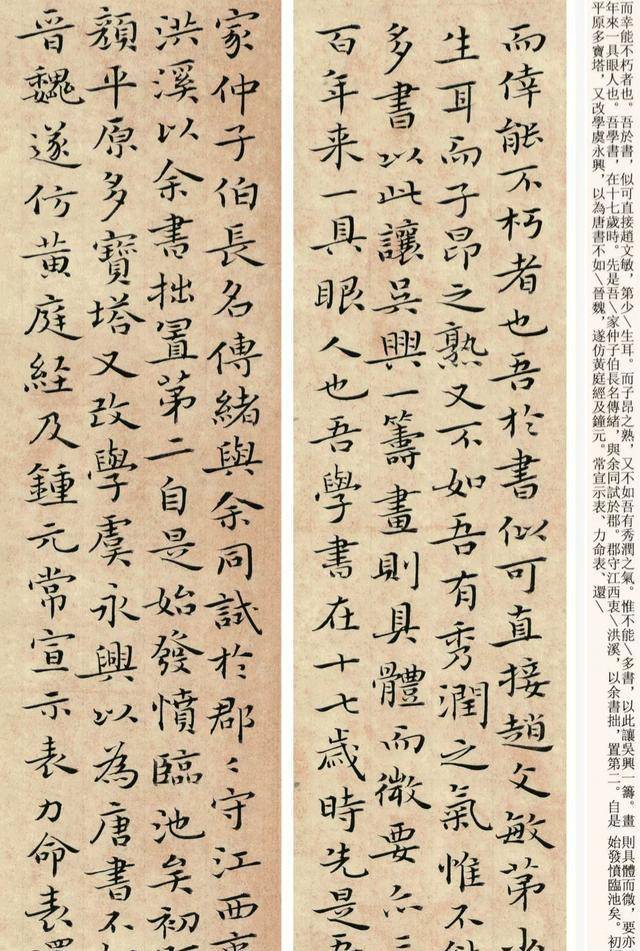 而幸能不朽者也。吾於書，似可直接趙文敏，第少\生耳。而子昂之熟，又不如吾有秀潤之氣。惟不能\多書，以此讓吳興一籌。畫則具體而微，要亦
年來一具眼人也。吾學書，在十七歲時。先是吾\家仲子伯長名傳緒，與余同試於郡。郡守江西衷\洪溪，以余書拙，置第二。自是始發憤臨池矣。初
平原多寶塔，又改學虞永興，以為唐書不如\晉魏，遂仿黃庭經及鐘元。常宣示表、力命表、還\
而倖能不朽者也吾於書似可直接趙文敏第少
生耳而子昂之熟又不如吾有秀潤之氣惟不能
多書以此讓吳興一籌畫則具體而微要亦
百年来一具眼人也吾學書在十七歲時先是吾
家仲子伯長名傳緒與余同試於郡〻守江西衷
洪溪以余書拙置第二自是始發憤臨池矣初
顔平原多寶塔又改學虞永興以為唐書不如
晉魏遂仿黃庭経及鍾元常宣示表力命表還